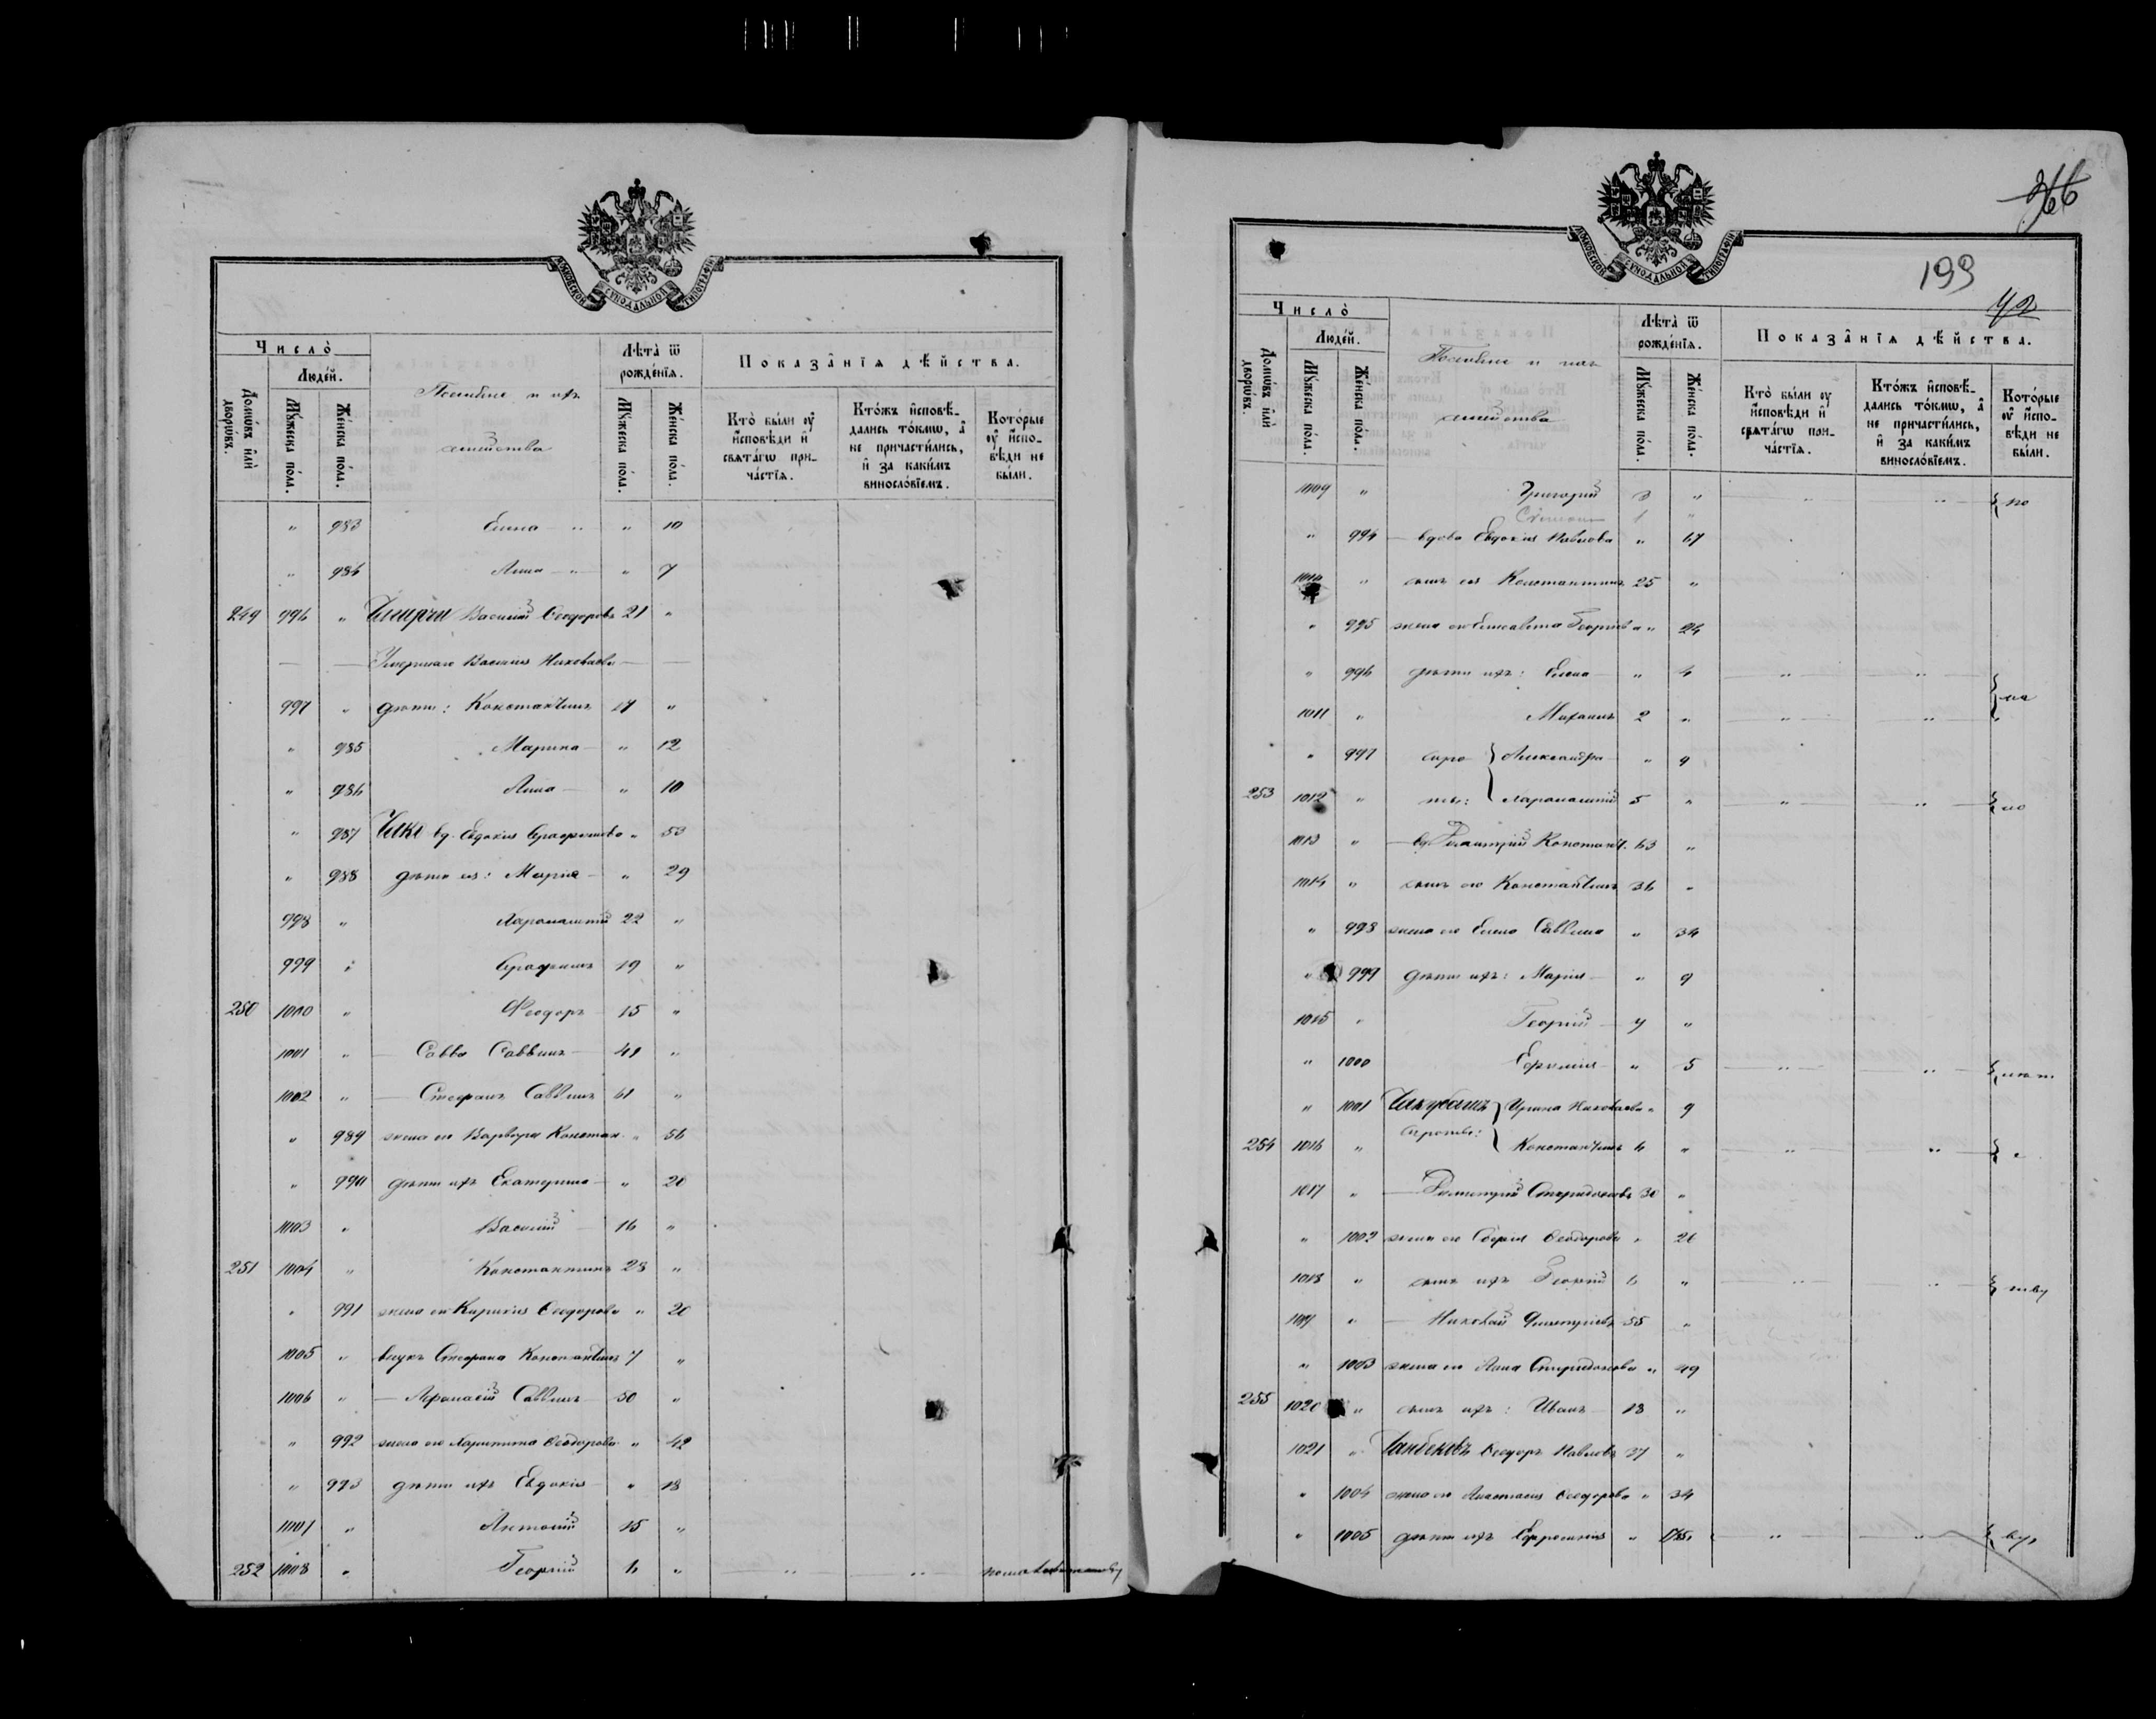 МОСКОВСКОЙ СѴНОДАЛЬНОЙ ТИПОГРАФІИ
Число̀
Людей.
Домѡвъ и҆лѝ дворѡ́въ.
Мꙋ́жеска по́ла.
Же́нска по́ла.
Поселяне и ихъ
семейства
Лѣта̀ ѿ рожде́нїѧ.
Мꙋ́жеска по́ла.
Же́нска по́ла.
Показа̑нїѧ дѣ́йства.
Кто̀ бы́ли ᲂу҆ и҆сповѣди и҆ свѧта́гѡ при-ча́стїѧ.
Кто́жъ и҆сповѣ́-дались то́кмѡ, а҆ не причасти́лись, и҆ за каки́мъ винослові́емъ.
Кото́рые ᲂу҆ и҆спо-вѣди не бы́ли.
" 983 Елена " " 10
" 984 Анна " " 7
249 996 " Василій Ѳеодоровъ 21 "
Умершаго Василія Николаева
997 " дѣти: Константинъ 17 "
" 985 Марина " 12
" 986 Анна " 10
" 987 вд. Евдокія " 53
" 988 дѣти ея: Марія " 29
998 " Харлампій 22 "
999 " 19 "
250 1000 " Ѳеодоръ 15 "
1001 " Савва Саввинъ 41 "
1002 " Стефанъ Саввинъ 61 "
" 989 жена его Варвара Констан. " 56
" 990 дѣти ихъ Екатерина " 20
1003 " Василій 16 "
251 1004 " Константинъ 28 "
" 991 жена его Ѳеодорова " 20
1005 " внукъ Стефана Константинъ 7 "
1006 " Афанасій Саввинъ 50 "
" 992 жена его Харитина Ѳеодорова " 42
" 993 дѣти ихъ Евдокія " 18
1007 " Антоній 15 "
252 1008 " Георгій 6 " " "
366
МОСКОВСКОЙ СѴНОДАЛЬНОЙ ТИПОГРАФІИ
193
Число̀
Людей.
Домѡвъ и҆лѝ дворѡ́въ.
Мꙋ́жеска по́ла.
Же́нска по́ла.
Поселяне и ихъ
семейства
Лѣта̀ ѿ рожде́нїѧ.
Мꙋ́жеска по́ла.
Же́нска по́ла.
Показа̑нїѧ дѣ́йства.
Кто̀ бы́ли ᲂу҆ и҆сповѣди и҆ свѧта́гѡ при-ча́стїѧ.
Кто́жъ и҆сповѣ́-дались то́кмѡ, а҆ не причасти́лись, и҆ за каки́мъ винослові́емъ.
Кото́рые ᲂу҆ и҆спо-вѣди не бы́ли.
1009 " Григорій 3 " " " по
1 "
" 994 вдова Евдокія Павлова " 67
1010 " сынъ ея Константинъ 25 "
" 995 жена его Елисавета Георгіева " 24
" 996 дѣти ихъ: Елена " 4 " "
1011 " Михаилъ 2 " " "
" 997 сиро Александра " 9
253 1012 " ты: Харлампій 5 " " "
1013 " вд. Димитрій Константи. 63 "
1014 " сынъ его Константинъ 36 "
" 998 жена его Елена Саввина " 34
" 999 дѣти ихъ: Марія " 9
1015 " Георгій 7 "
" 1000 Евфимія " 5 " "
" 1001 Ирина Николаева " 9
254 1016 " сироты: Константинъ 6 " " "
1017 " Димитрій Спиридоновъ 30 "
" 1002 жена его Софія Ѳеодорова " 26
1018 " сынъ ихъ Георгій 6 " " "
1019 " Николай Димитріевъ 55 "
" 1003 жена его Анна Спиридонова " 49
255 1020 " сынъ ихъ: Иванъ 18 "
1021 " Ѳеодоръ Павловъ 37 "
" 1004 жена его Анастасія Ѳеодорова " 34
" 1005 дѣти ихъ Ефросинія " " "